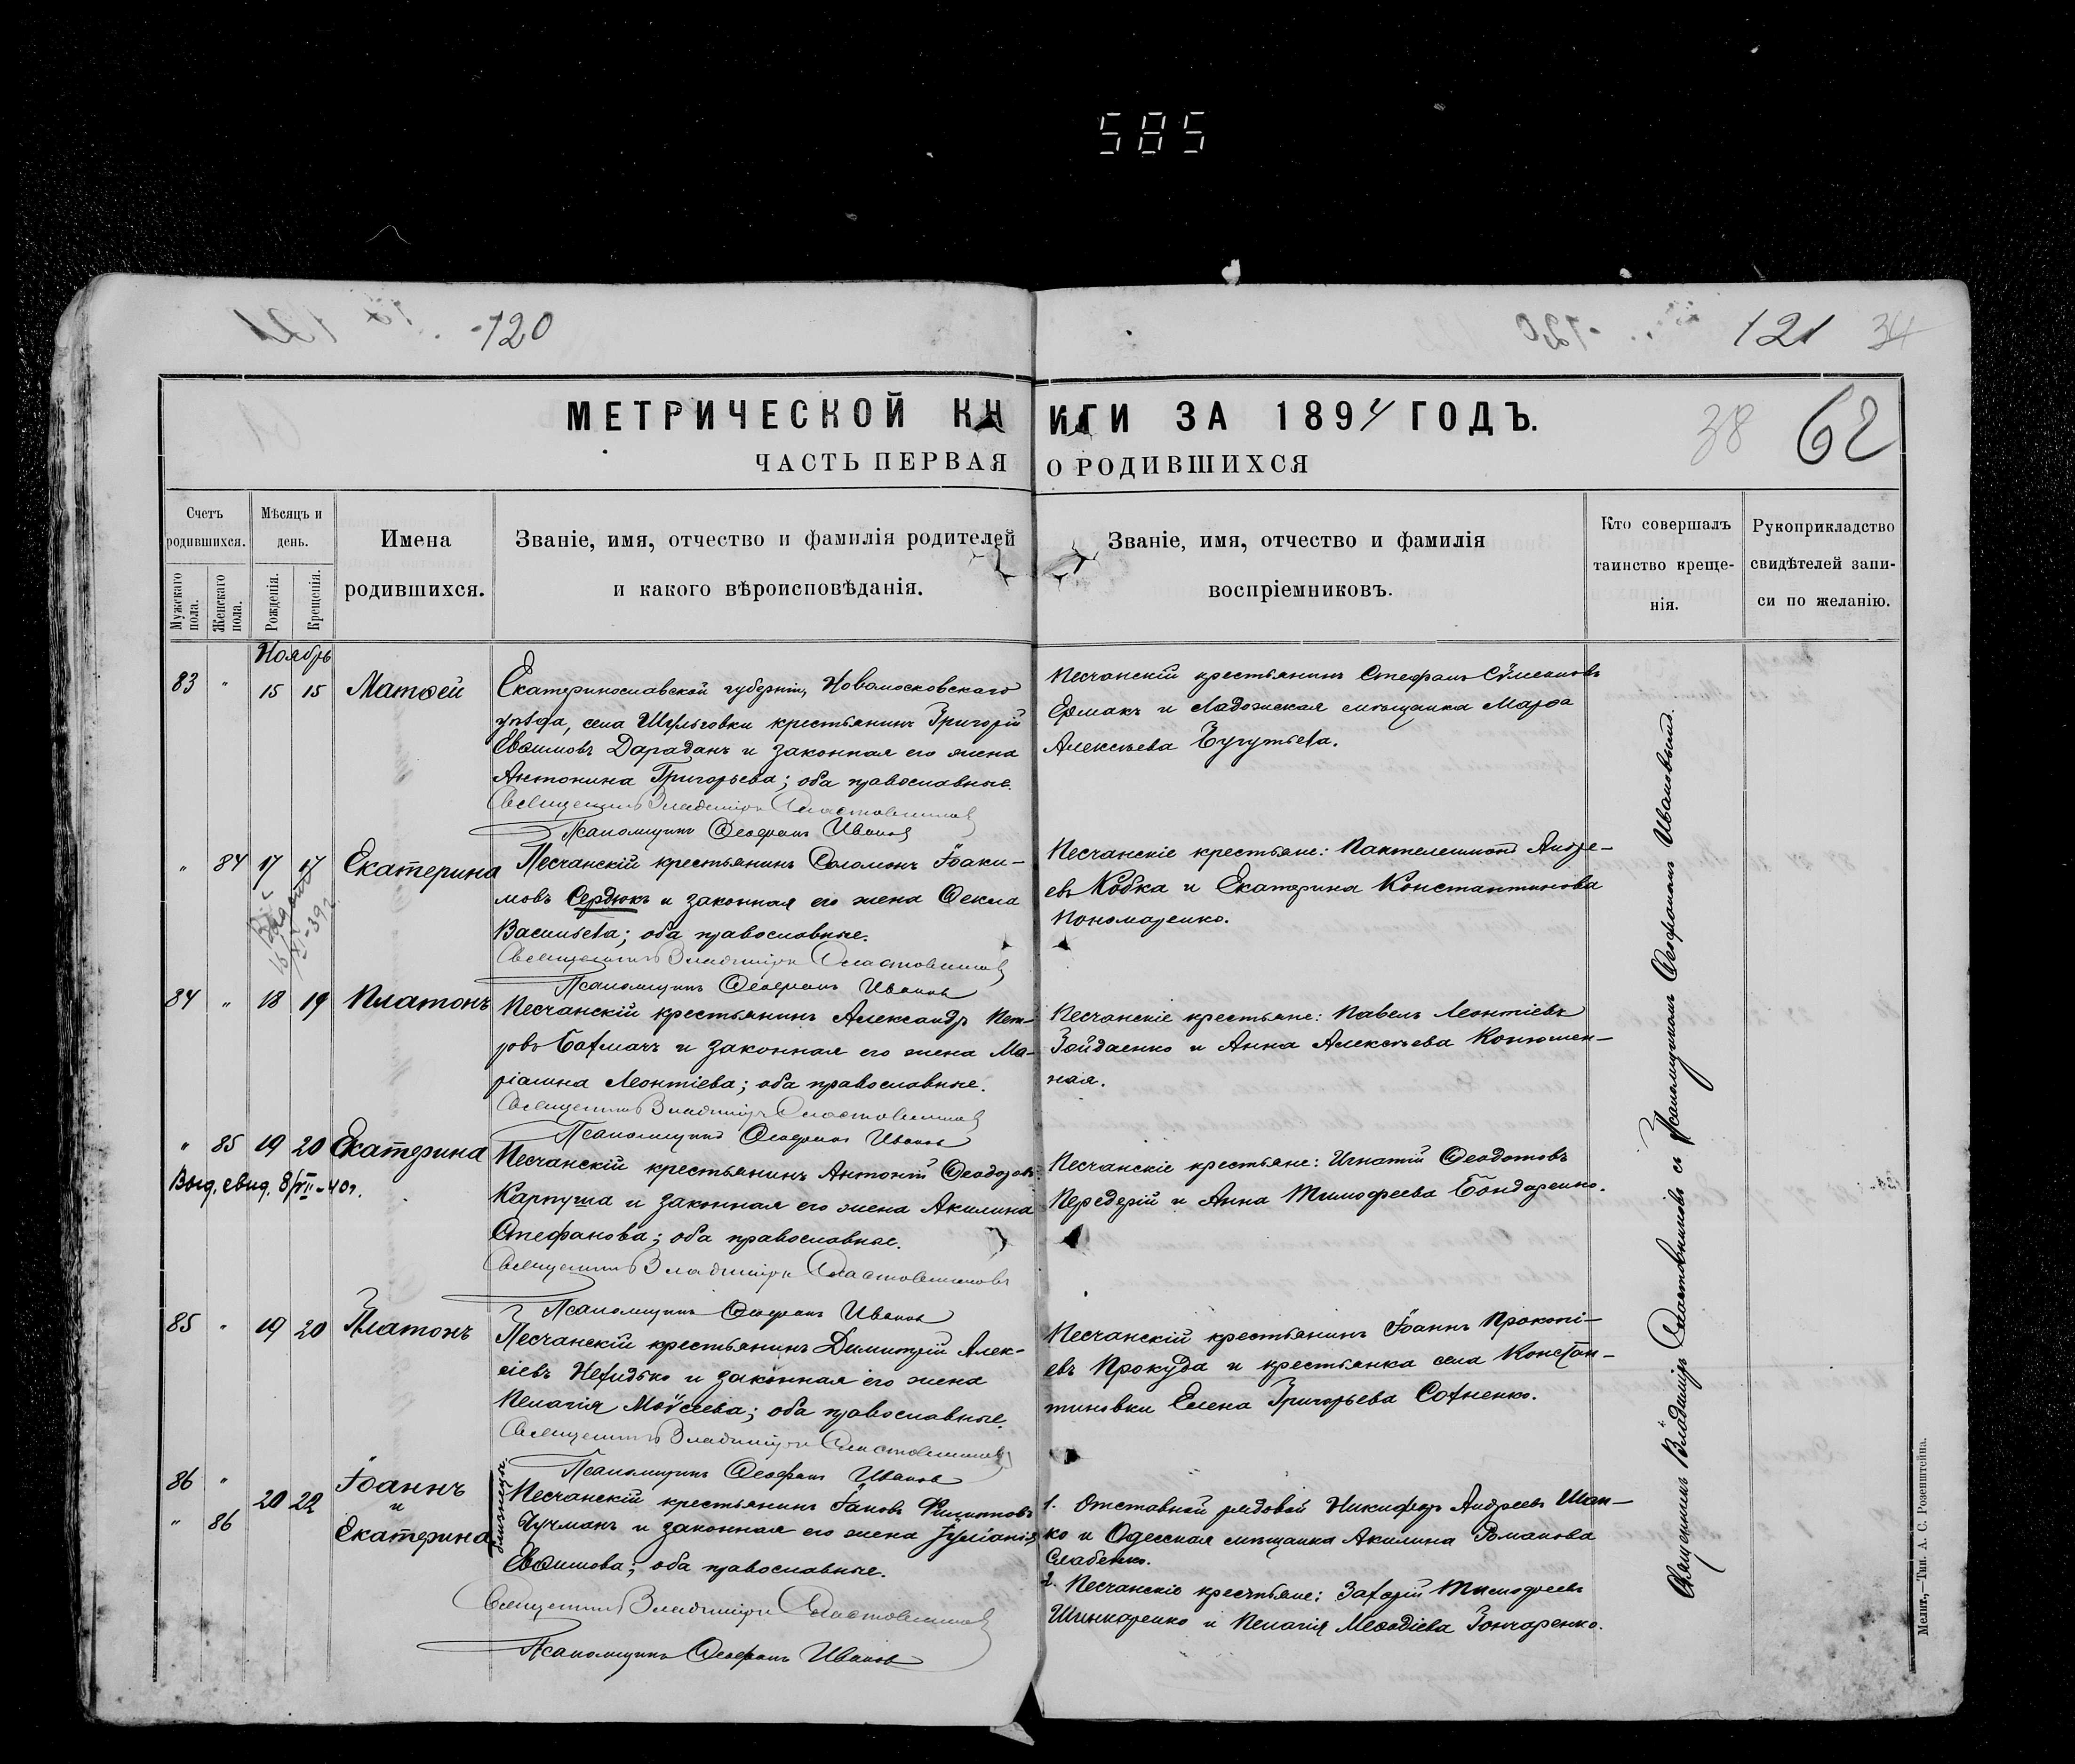 585
-120
121 34
МЕТРИЧЕСКОЙ КНИГИ ЗА 1894 ГОДЪ.
38 62
ЧАСТЬ ПЕРВАЯ О РОДИВШИХСЯ
Счетъ родившихся.
Мужскаго пола.
Женскаго пола.
Мѣсяцъ и день.
Рожденія.
Крещенія.
Имена
родившихся.
Званіе, имя, отчество и фамилія родителей
и какого вѣроисповѣданія.
Званіе, имя, отчество и фамилія
воспріемниковъ.
Кто совершалъ
таинство креще-
нія.
Рукоприкладство
свидѣтелей запи-
си по желанію.
Ноябрь
83 " 15 15 Матѳей
Екатеринославской губерніи, Новомосковскаго
уѣзда, села Шульговки крестьянинъ Григорій
Евѳимовъ Дараданъ и законная его жена
Антонина Григорьева; оба православные.
Священникъ Владиміръ Сластовниковъ
Псаломщикъ Ѳеофанъ Ивановъ
Песчанскій крестьянинъ Стефанъ Сѵмеоновъ
Ермакъ и Ладожская мѣщанка Марѳа
Алексѣева
" 84 17 17 Екатерина
Песчанскій крестьянинъ Соломонъ Іоаки-
мовъ Сердюкъ и законная его жена Ѳекла
Васильева; оба православные.
Священникъ Владиміръ Сластовниковъ
Псаломщикъ Ѳеофанъ Ивановъ
Песчанскіе крестьяне: Пантелеимонъ Андре-
евъ Кобка и Екатерина Константинова
Пономаренко.
84 " 18 19 Платонъ
Песчанскій крестьянинъ Александръ Пет-
ровъ Бахмачъ и законная его жена Ма-
ріанна Леонтіева; оба православные.
Священникъ Владиміръ Сластовниковъ
Псаломщикъ Ѳеофанъ Ивановъ
Песчанскіе крестьяне: Павелъ Леонтіевъ
Гайдаенко и Анна Алексѣева Конюшен-
ная.
" 85 19 20 Екатерина
Выд. свид. 8/VII-40г.
Песчанскій крестьянинъ Антоній Ѳеодоровъ
Карпуша и законная его жена Акилина
Стефанова; оба православные.
Священникъ Владиміръ Сластовниковъ
Псаломщикъ Ѳеофанъ Ивановъ
Песчанскіе крестьяне: Игнатій Ѳеодотовъ
Передерій и Анна Тимофеева Бондаренко.
85 " 19 20 Платонъ
Песчанскій крестьянинъ Димитрій Алек-
сіевъ Нехидько и законная его жена
Пелагія Моѵсеева; оба православные.
Священникъ Владиміръ Сластовниковъ
Псаломщикъ Ѳеофанъ Ивановъ
Песчанскій крестьянинъ Іоаннъ Прокопі-
евъ Прокуда и крестьянка села Констан-
тиновки Елена Григорьева Сохненко.
86 "
" 86
20 22
Іоаннъ
и
Екатерина
близнецы.
Песчанскій крестьянинъ Іаковъ Филиповъ
Чучманъ и законная его жена Іуліанія
Евѳимова; оба православные.
Священникъ Владиміръ Сластовниковъ
Псаломщикъ Ѳеофанъ Ивановъ
1. Отставной рядовой Никифоръ Андреевъ Шап-
ко и Одесская мѣщанка Акилина Романова
Слабенко.
2. Песчанскіе крестьяне: Захарій Тимофеевъ
Шинкаренко и Пелагія Меѳодіева Гончаренко.
Священникъ Владиміръ Сластовниковъ съ Псаломщикомъ Ѳеофаномъ Ивановымъ.
Мелит.—Тип. А. С. Розенштейна.